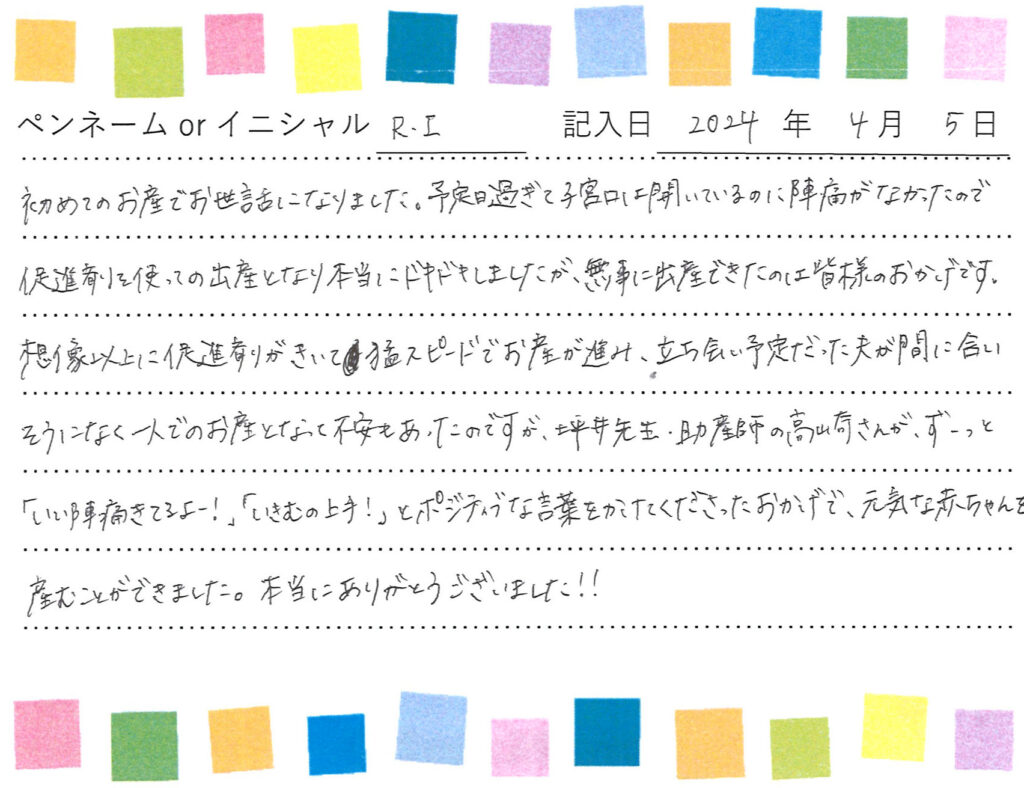 ペンネーム or イニシャル R.I 記入日 2024 年 4 月 5 日
初めてのお産でお世話になりました。予定日過ぎて子宮口は開いているのに陣痛がなかったので
促進剤を使っての出産となり本当にドキドキしましたが、無事に出産できたのは皆様のおかげです。
想像以上に促進剤がきいて猛スピードでお産が進み、立ち会い予定だった夫が間に合い
そうになく一人でのお産となって不安もあったのですが、坪井先生・助産師の高山荷さんが、ずーっと
「いい陣痛きてるよー!」「いきむの上手!」とポジティブな言葉をかけてくださったおかげで、元気な赤ちゃんを
産むことができました。本当にありがとうございました!!